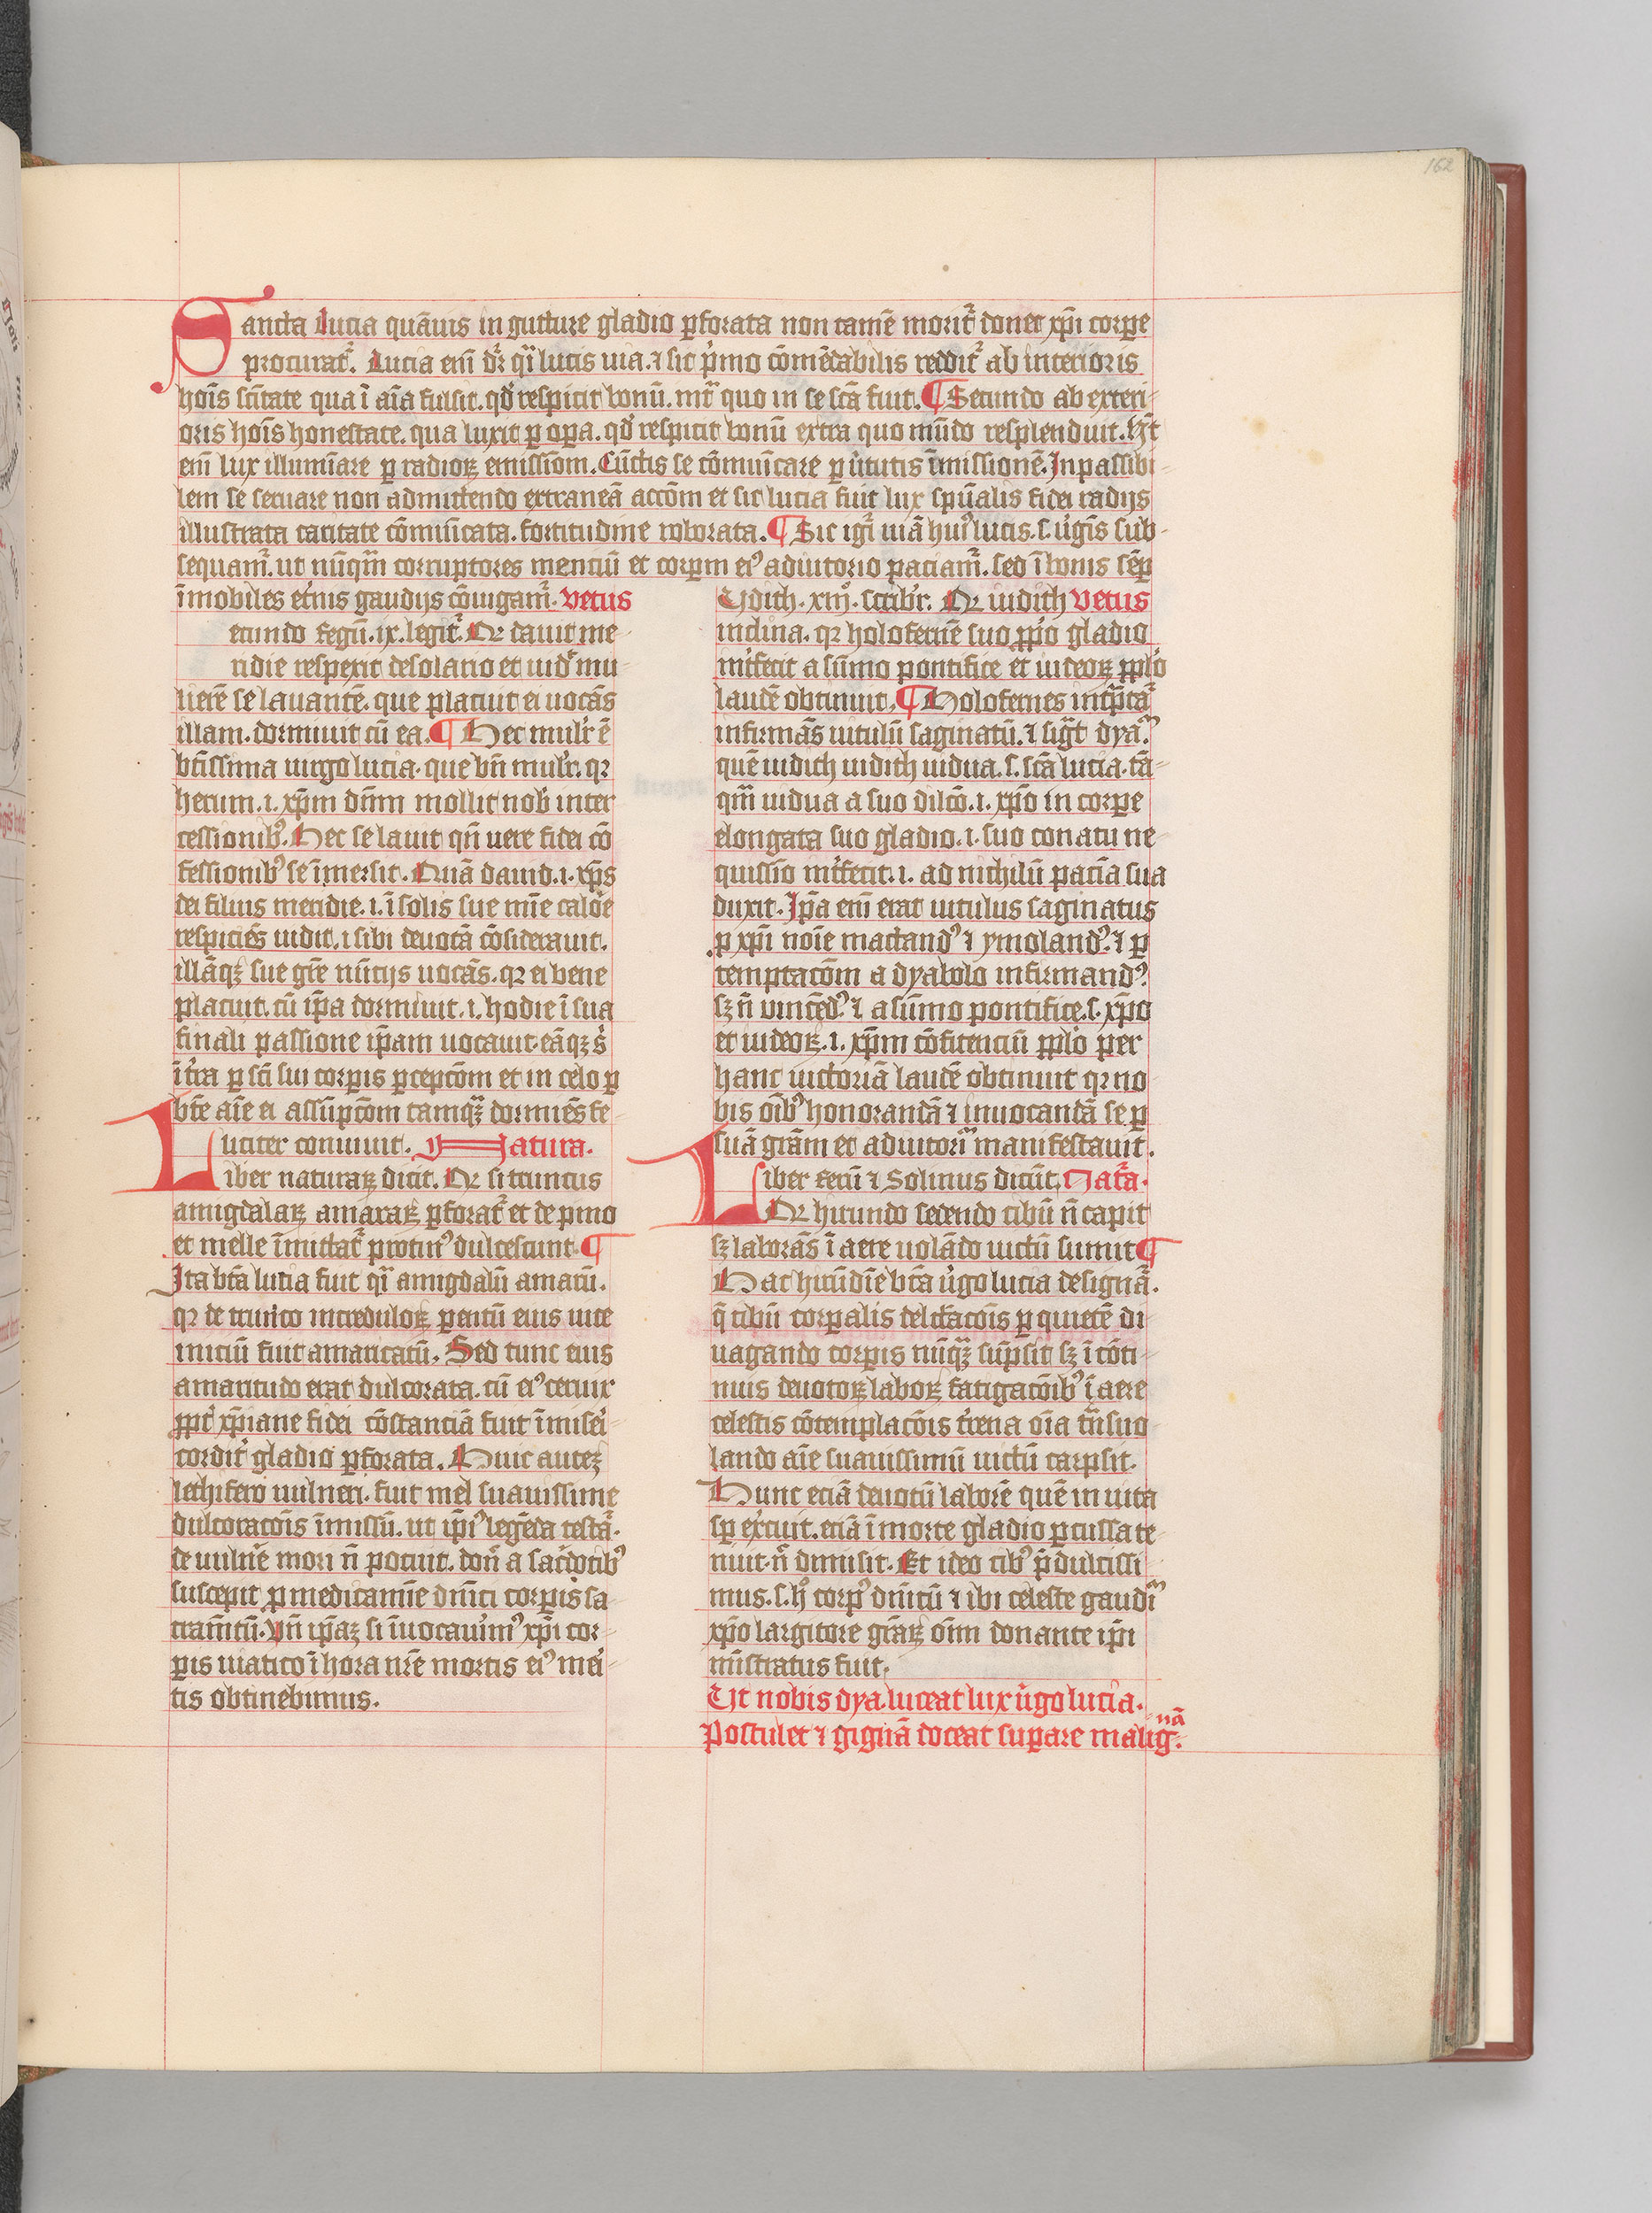 162
Sancta Lucia quāuis in gutture gladio ꝑforata non tamē morit᷑ donec xp̄i corpe
procurat᷑. Lucia enī dr̄ qͣi lucis uia. ⁊ sic pͥmo cōmēdabilis reddit᷑ ab interioris
hoīs scītate qua ī aīa fulsit. qď respicit bonū. mr̄ quo in se scā fuit. ¶ Secundo ab exteri-
oris hoīs honestate. qua luxit ꝑ oꝑa. qď respicit bonū extra quo mūdo resplenduit. Ht̄
enī lux illumīare ꝑ radioꝝ emissiōm. Cūctis se cōmuīcare ꝑ ùtutis īmissionē. Inpassibi-
lem se seruare non admittendo extraneā accōm et sic lucia fuit lux spūalis fidei radijs
illustrata caritate cōmuīcata. fortitudine roborata. ¶ Sic igr̄ uiā huiꝰ lucis. s. ùgīs sub-
sequam᷑. ut nūqͣm corruptores menciū et corpm eiꝰ adiutorio paciam᷑. sed ī bonis sēꝑ
īmobiles et̓nis gaudijs cōiūgam᷑. Vetus
ecundo regū. ix. legit᷑. Qr dauit me-
ridie respexit desolatio et uidͥ mu-
lierē se lauantē. que placuit ei uocās
illam. dormiuit cū ea. ¶ Hec mulr̓ ē
btīssima uirgo lucia. que bn̄ mulr̓. qr
herum. i. xp̄m dn̄m mollit nob inter
cessionibꝰ. Hec se lauit qn̄ uere fidei cō
fessionibꝰ se īmersit. Quā dauid. i. xp̄s
dei filius meridie. i. ī solis sue mīe calōe
respiciēs uidit. i sibi deuotā cōsiderauit.
illāqꝫ sue grē nūcijs uocās. qr ei bene
placuit. cū ip̄a dormiuit. i. hodie ī sua
finali passione ip̄am uocauit. eāqꝫ s̓
īt̓ra ꝑ scī sui corpis ꝑcepcōm et in celo ꝑ
btē aīe ei assūpcōm tamqͣꝫ dormiēs fe-
liciter conuiuit. Natura.
Liber naturaꝝ dicit. Qr si truncus
amigdalaꝝ amaraꝝ ꝑforat᷑ et de pino
et melle īmittat᷑ protinꝰ dulcescunt. ¶
Ita btā lucia fuit qͣi amigdalū amarū.
qr de trunco increduloꝝ parētū eius uite
iniciū fuit amaricatū. Sed tunc eius
amaritudo erat dulcorata. cū eiꝰ ceruix
ꝓpt̓ xp̄iane fidei cōstanciā fuit īmiseri-
cordit̓ gladio ꝑforata. Huic autēꝫ
lethifero uulneri. fuit mel suauissime
dulcoracōis īmissū. ut ip̄iꝰ legēda testa᷑.
de uulnē̓ mori n̄ potuit. don̄ a sac̓dotibꝰ
suscepit ꝑ medicamīe dn̄ici corpis sa-
cramētū. Vn̄ ip̄aꝫ si īuocauim̓ꝰ xp̄i cor-
pis uiatico ī hora nr̄e mortis eiꝰ meri-
tis obtinebimus.
Udith. xiijͦ. scribr̓. Qr iudith Vetus
indina. qr holofernē suo ꝓpͥo gladio
int̓fecit a sūmo pontifice et iudeoꝝ ꝓplo
laudē obtinuit. ¶ Holofernes int̓pta᷑
infirmās uitulū saginatū. ⁊ sigͣt dya.ͫ
quē iudith uidith uidua. s. scā lucia. tā-
qͣm uidua a suo dilcō. i. xp̄o in corpe
elongata suo gladio. i. suo conatu ne-
quissīo int̓fecit. i. ad nichilū pacīa sua
duxit. Ip̄a enī erat uitulus saginatus
ꝑ xp̄i noīe mactandꝰ ⁊ ymolandꝰ. ⁊ ꝑ
temptacōm a dyabolo infirmandꝰ
sꝫ n̄ vincēdꝰ. ⁊ a sūmo pontifice. s. xp̄o
et iudeoꝝ. i. xp̄m cōfitenciū ꝓplo per
hanc uictoriā laudē obtinuit qr no-
bis oībꝰ honorandā ⁊ inuocandā se ꝑ
suā grām et adiutoriͫ manifestauit.
Liber rerū ⁊ Solinus dicūt. Nat᷑a.
Qr hirundo sedendo cibū n̄ capit
sꝫ laborās ī aere uolādo uictū sumit ¶
Hac hirūdīe btā ùgo lucia designa᷑.
q̄ cibū corpalis delctacōis ꝑ quietē di-
uagando corpis nūqͣꝫ sūpsit sꝫ ī cōti-
nuis deuotoꝝ laboꝝ fatigacōibꝰ ī aere
celestis cōtemplacōis t̓rena oīa trāsuo-
lando aīe suauissimū uictū carpsit.
Hunc eciā deuotū laborē quē in uita
sꝑ ex̓cuit. eciā ī morte gladio ꝑcussa te-
nuit. n̄ dimisit. Et ideo cibꝰ p̄dulcissi-
mus. s. hͦ corpꝰ dn̄icū ⁊ ibi celeste gaudiͫ
xp̄o largitore grāꝝ oīm donante ip̄i
mīstratus fuit.
Ut nobis dya. luceat lux ùgo lucia.
Postulet ⁊ gignā doceat suꝑare malig-nā.